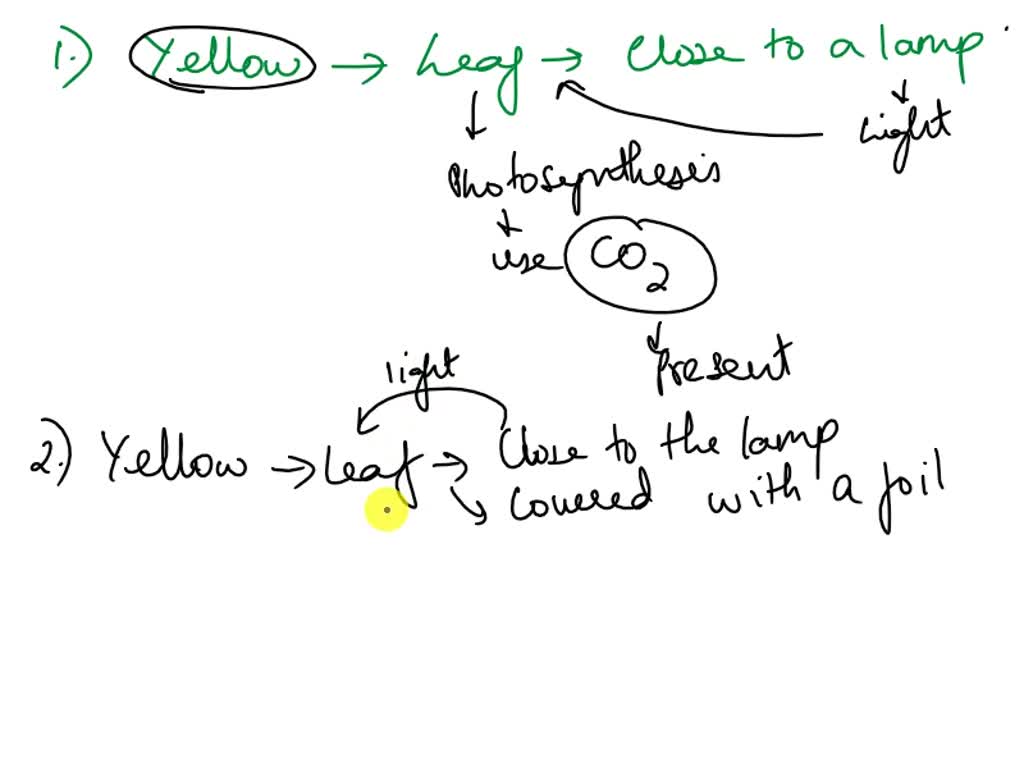 1.) Yellow → Leaf → Close to a lamp
Light
Photosynthesis
use CO2
Present
light
2.) Yellow → Leaf → Close to the lamp
Covered with a foil